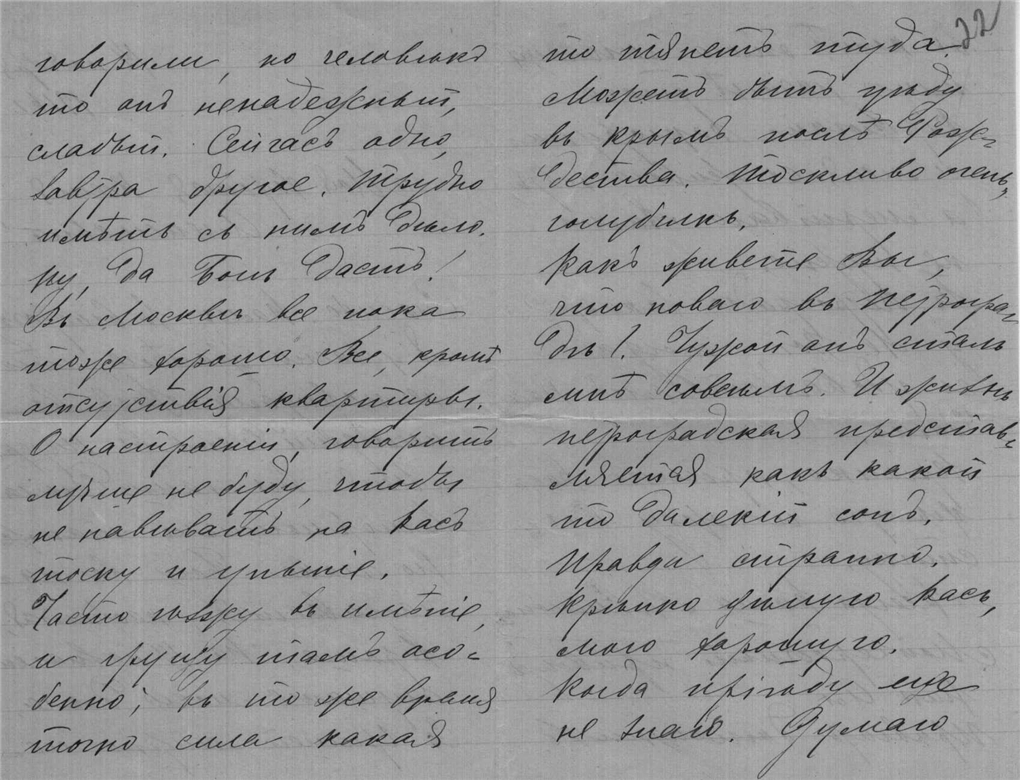 говорили, но человѣкъ
то онъ ненадежный,
слабый. Сейчасъ одно,
завтра другое. Трудно
имѣть съ нимъ дѣло.
Ну, да Богъ дастъ!
Въ Москвѣ все пока
тоже хорошо. Все, кромѣ
отсутствія квартиры.
О настроеніи, говорить
лучше не буду, чтобы
не навѣвать на Васъ
тоску и уныніе.
Часто гляжу въ имѣніе,
и грущу тамъ осо-
бенно; въ то же время
точно сила какая
22
то тянетъ туда.
Можетъ быть уѣду
въ крымъ послѣ Рож-
дества. Тоскливо очень,
голубчикъ.
Какъ живете Вы,
что новаго въ Петрогра-
дѣ?. Чужой онъ сталъ
мнѣ совсѣмъ. И жизнь
петроградская представ-
ляется какъ какой
то далекій сонъ.
Правда странно.
Крѣпко цѣлую Васъ,
моего хорошую.
Когда пріѣду еще
не знаю. Думаю